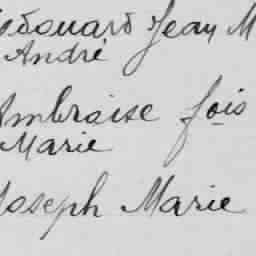 Edouard Jean M
André
Ambroise fois
Marie
Joseph Marie